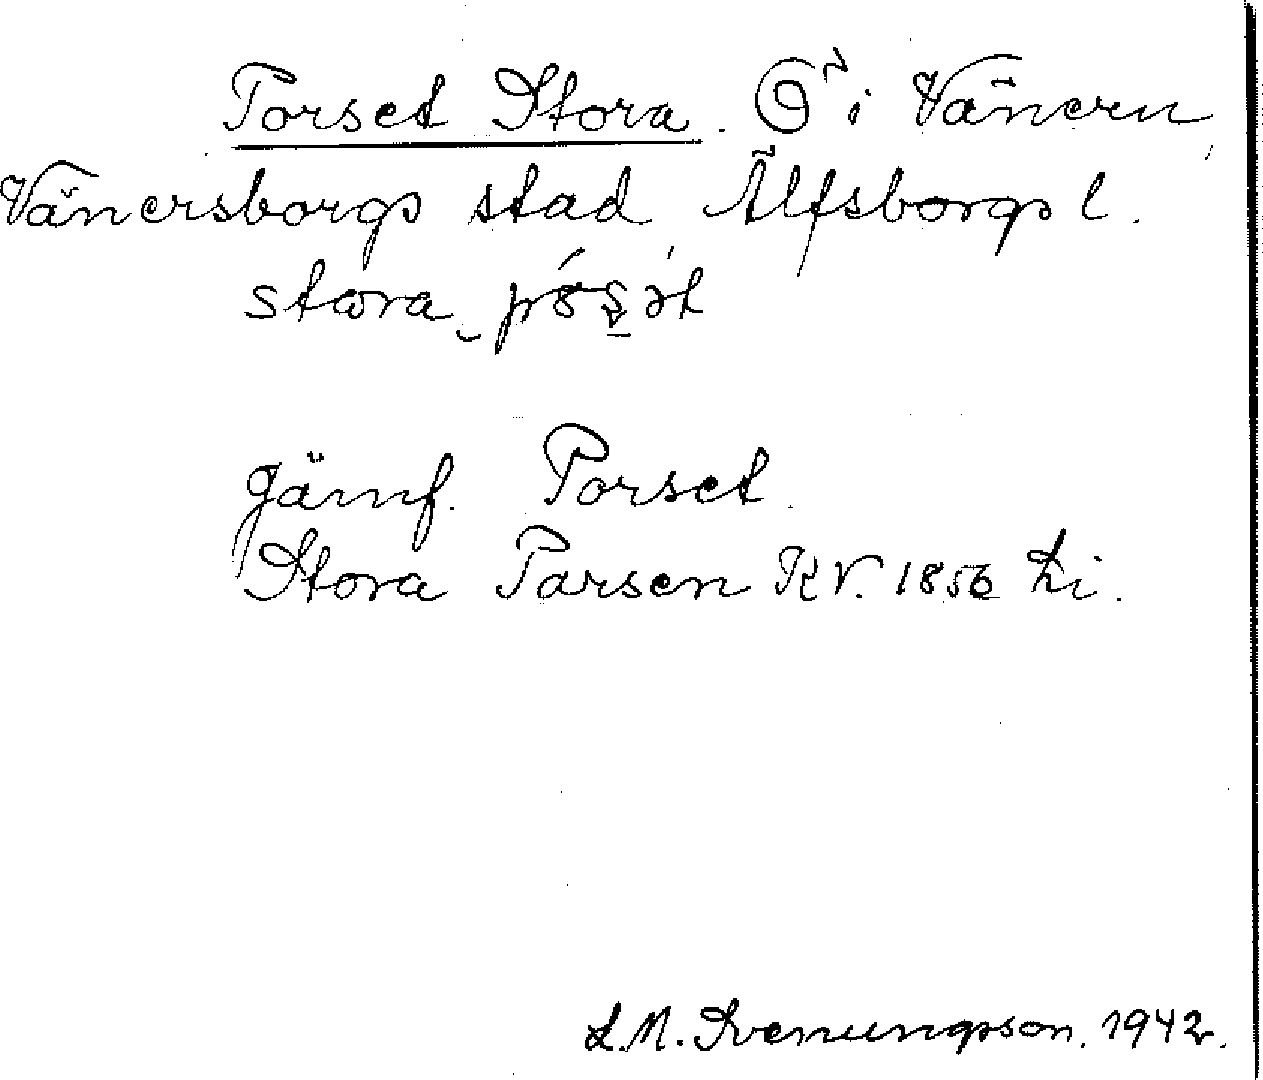 Porset Stora. Ö i Vänern,
Vänersborgs stad, Älfsborgs l.
Jämf. Porset.
Stora Parsen KV. 1856
L.M. Svenungsson. 1942.